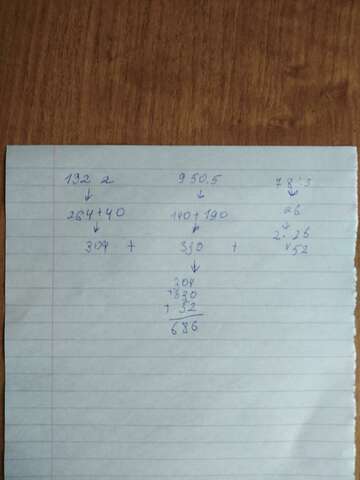 132 2 950.5 78:3
264+40 140+190 26
304 + 330 + 2.26
52
304
+330
+ 52
686